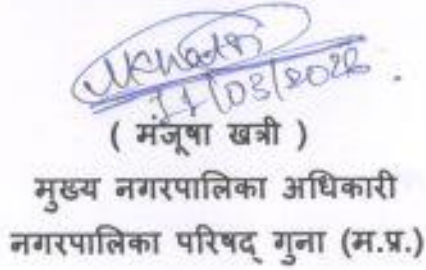 11/03/2026.
( मंजूषा खत्री )
मुख्य नगरपालिका अधिकारी
नगरपालिका परिषद् गुना (म.प्र.)